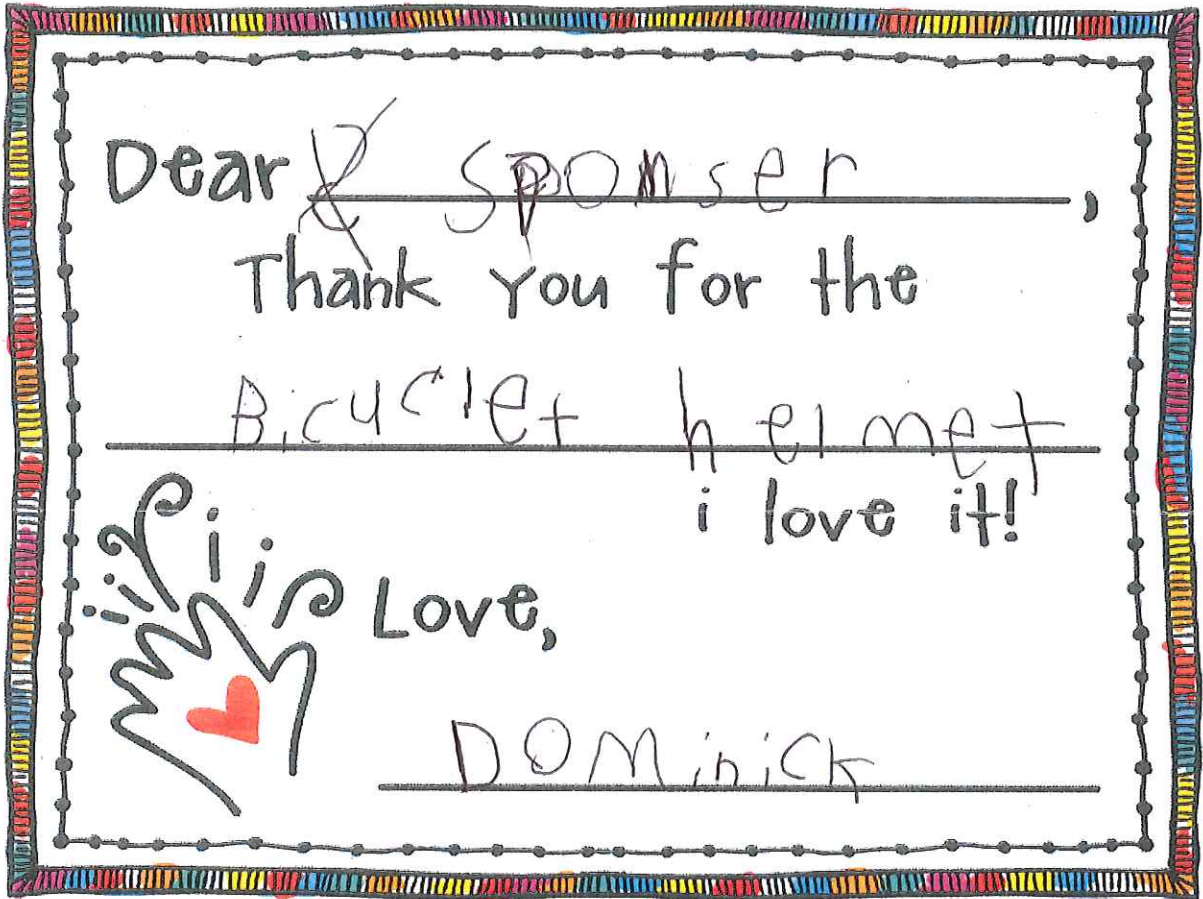 Dear Sponser,
Thank you for the
Bicyclet helmet
i love it!
Love,
Dominick